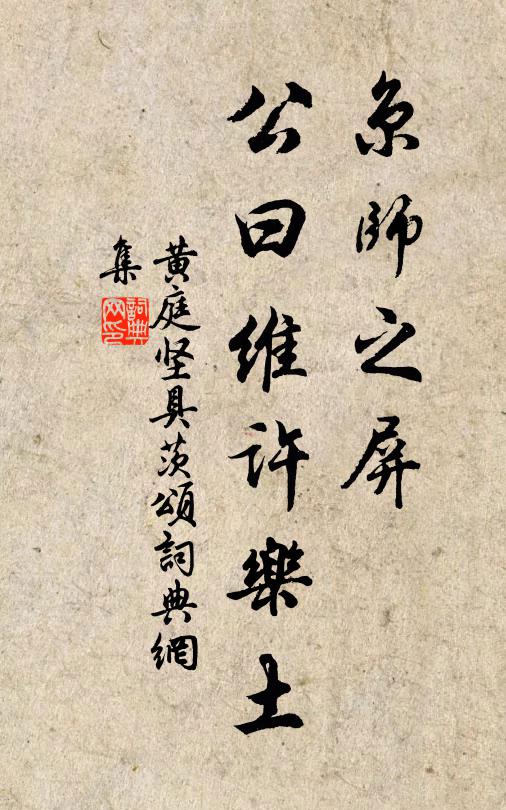 京師之屏
公曰維許樂土
黄庭坚具茨頌詞典網
集
詞典
网印